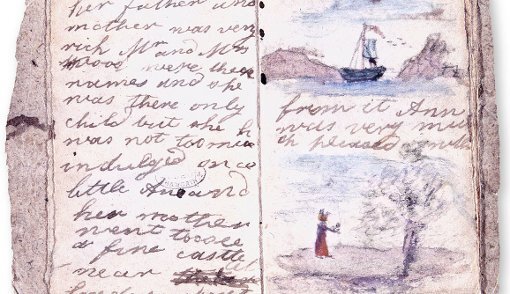 her father and
mother was very
rich Mr and Mrs
Wood were there
names and she
was there only
child but she
was not too much
indulged once
little Ane and
her mother
went to see
a fine castle
near
from it Ann
was very mu
ch pleased with